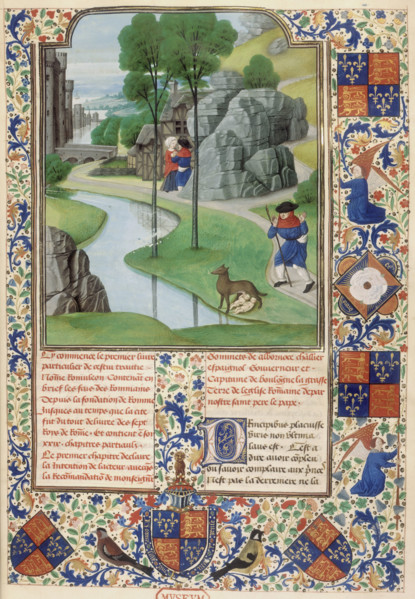 Cy commence le premier livre
particulier de cestui traittie
Nōme Romuleon Contenāt en
brief les fais des Rommains
Depuis la fondation de Romme
jusques au temps que la cite
fut du tout delivre des sept
Rois de Rōme. et contient
xxix. chapitres partiaulx.
Le premier chapitre declaire
la intention de lacteur avecqs
la Recommandatiō de monseignr
espaignol Gouverneur et
Cappitaine de boulongne la grasse
Terre de leglise Rōmaine depar
nostre saint pere le pape.
Principibus placuisse
viris non ultima
laus est. Cest a
dire avoir
ou savoir complaire aux
Nest pas la derreniere ne la
MVSEVM